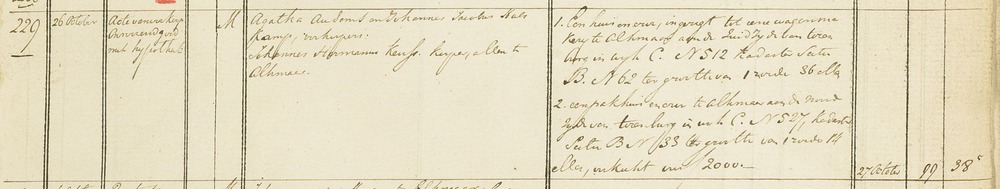 229
26 October
Acte van verkoop
Onroerend goed
met hypotheek
M
Agatha
en Johannes Jacobus
Kamp, verkopers.
Johannes Hermanus koper, allen te
Alkmaar.
1. Een huis en erve, ingerigt tot eene wagenma
kery te Alkmaar aan de Zuidzyde van toren
burg in wyk C. N 512 Kadaster Sectie
B. N 62 ter grootte van 1 roede 36 ellen
2. een pakhuis en erve te Alkmaar aan de noord
zyde van torenburg in wyk C. N 527, Kadaster
Sectie B N 33 ter grootte van 1 roede 14
ellen, verkocht voor f 2000.-
27 October
99
38